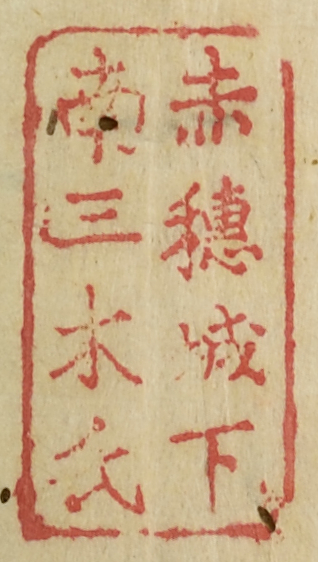 赤穗城下
南三木氏